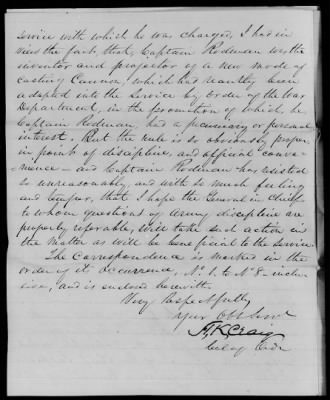 service with which he was charged, I had in
view the fact that Captain Rodman was the
inventor and projector of a new mode of
casting Cannon, which had recently been
adopted into the Service by order of the War
Department, in the promotion of which he,
Captain Rodman, had a pecuniary or personal
interest. But the rule is so obviously proper
in point of discipline, and official conve-
nience - and Captain Rodman has resisted
so unreasonably, and with so much feeling
and temper, that I hope the General in Chief
to whom questions of Army discipline are
properly referable, will take such action in
the matter as will be beneficial to the Service.
The Correspondence is marked in the
order of its occurrence, No. 1. to No 8 - inclu-
sive, and is enclosed herewith.
Very Respectfully
Your Obt Servt
H. K. Craig
Col of Ord